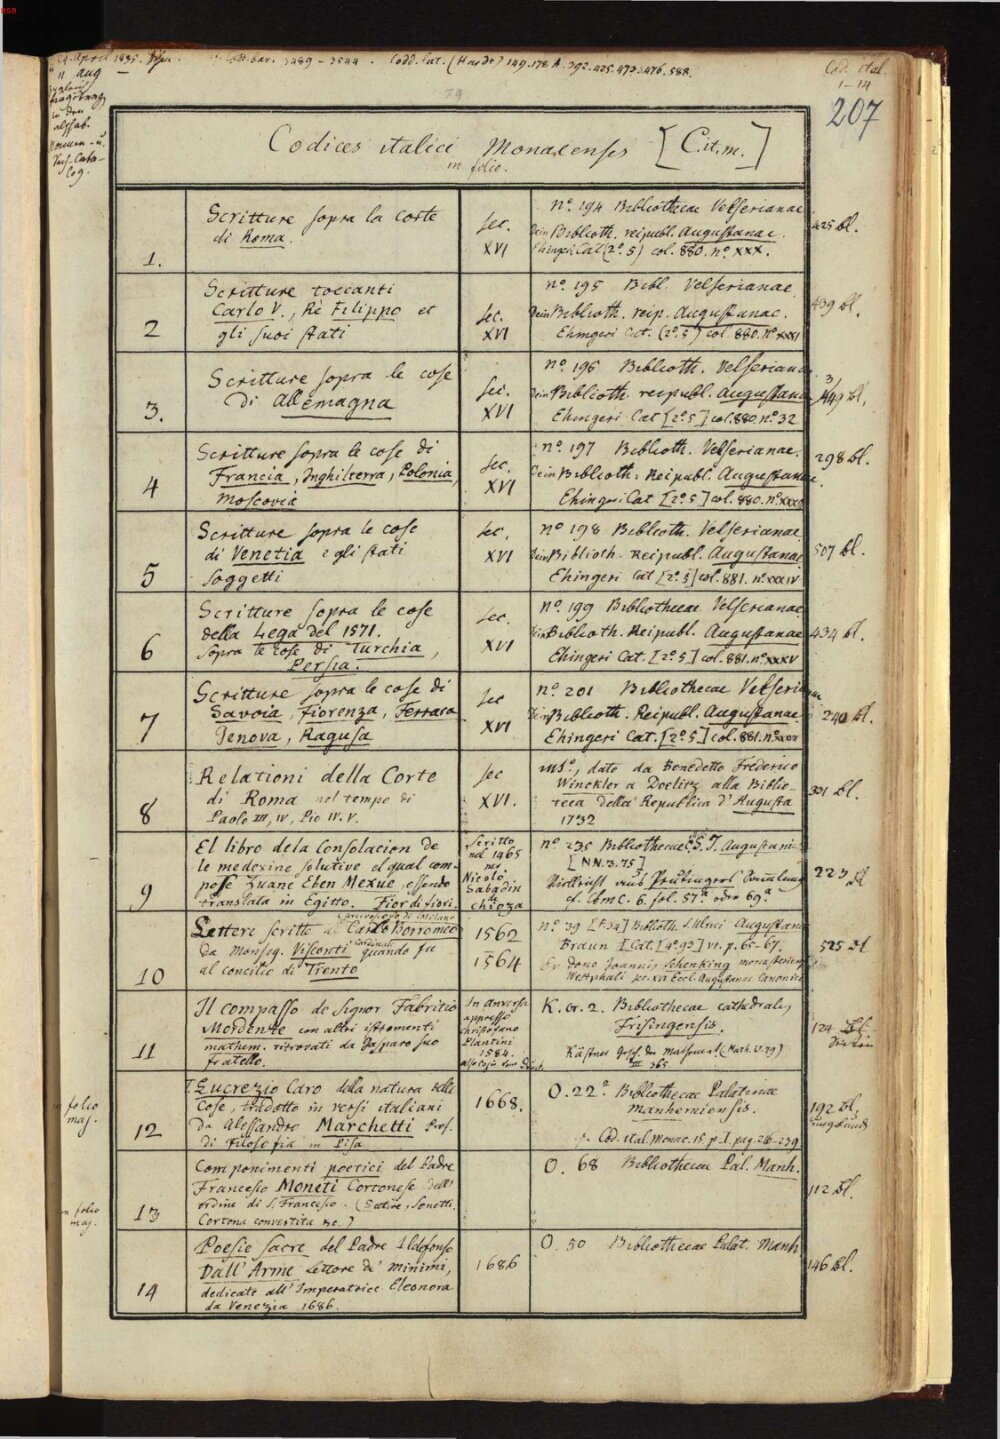 BSB
Cod. bav. 3489 – 3544. Codd. lat. (Hardt) 149.178 A.392.425.473.476.588.
Cod. ital.
1–14
207
Codices italici Monacenses [C.it.m.]
in folio.
1.
Scritture sopra la corte
di Roma.
sec.
XVI
nº 194 Bibliothecae Velserianae
Dein Biblioth. reipubl. Augustanae.
Ehingeri Cat (2º. 5) col. 880. nº XXX.
425 bl.
2
Scritture toccanti
Carlo V., Rè Filippo et
gli suoi stati
sec.
XVI
nº 195 Bibl. Velserianae
Dein Biblioth. reip. Augustanae.
Ehingeri Cat. (2º. 5) col 880. Nº XXXI
439 bl.
3.
Scritture sopra le cose
di Allemagna
sec.
XVI
nº 196 Biblioth. Velseriana
Dein Biblioth reipubl. Augustana
Ehingeri Cat [2º 5] col. 880 nº 32
449 bl.
4
Scritture sopra le cose di
Francia, Inghilterra, Polonia,
Moscovia
sec.
XVI
nº 197 Biblioth. Velserianae.
Dein Biblioth. Reipubl. Augustanae.
Ehingeri Cat [2º 5] col. 880. nº XXXIII
298 bl.
5
Scritture sopra le cose
di Venetia e gli stati
soggetti
sec.
XVI
nº 198 Biblioth. Velserianae
Dein Biblioth. Reipubl. Augustanae
Ehingeri Cat [2º. 5] col. 881. nº XXXIV
507 bl.
6
Scritture sopra le cose
della Lega del 1571.
sopra le cose di Turchia,
Persia.
sec.
XVI
nº 199 Bibliothecae Velserianae
Dein Biblioth. Reipubl. Augustanae
Ehingeri Cat. [2º 5] col. 881. nº XXXV
434 bl.
7
Scritture sopra le cose di
Savoia, Fiorenza, Ferrara
Genova, Ragusa
sec
XVI
nº. 201 Bibliothecae Velserianae
Dein Biblioth. Reipubl. Augustanae
Ehingeri Cat. [2º 5] col. 881. nº
240 bl.
8
Relationi della Corte
di Roma nel tempo di
Paolo III, IV, Pio IV. V.
sec
XVI.
Msº., dato da Benedetto Frederico
Winckler a Doelitz alla Biblio-
teca della Republica d'Augusta
1732
331 bl.
9
El libro dela Consolacion de
le medexine solutive el qual com-
pose Zuane Eben Mexue, essendo
translata in Egitto. Fior di fiori.
Scritto
nel 1465
per
Nicolo
Sabadin
de
Chioza
nº 235 Bibliothecae S. J. Augustanae
[NN. 3. 75]
Vielleicht aus Peutingers Sammlung
cf. Cbmc. 6. fol. 57ª oder 69ª
223 bl
10
Lettere scritte al Carlo Borromeo
(arcivescovo di Milano
da Monseg. Visconti quando fu
Cardinal
al concilio di Trento
1562
–
1564
nº 39 [F 34] Biblioth. S. Ulrici Augustana
Braun [Cat. [4º 93] VI. p. 65–67.
Ex dono Joannis Schenking monasteriens
Westphali sec. XVI Eccl. Augustanae Canonici
525 bl
11
Il compasso de Signor Fabritio
Mordente con altri istromenti
mathem. ritrovati da Gasparo suo
fratello.
In Anversa
appresso
Christofano
Plantini
1584.
K. cr. 2. Bibliothecae cathedralis
Frisingensis.
Kästner Gesch. der Mathemat. (Math. U. 79)
III 365
124 bl.
in folio
maj.
12
T. Lucrezio Caro della natura delle
Cose, tradotto in versi italiani
da Alessandro Marchetti Prof.
di Filosofia in Pisa
1668.
O. 22.ª Bibliothecae Palatinae
Manhemiensis.
Cod. ital. Monac. 15 p. I. pag. 216–239
192 bl.
ungebund
in folio
maj.
13
Componimenti poetici del Padre
Francesco Moneti Cortonese dell'
ordine di S. Francesco. (Satire, Sonetti,
Cortona convertita &c.)
O. 68 Bibliothecae Pal. Manh.
112 bl.
14
Poesie sacre del Padre Ildefonso
Dall' Arme Lettore de' minimi,
dedicate all' Imperatrice Eleonora
da Venezia 1686.
1686
O. 50 Bibliothecae Palat. Manh.
146 bl.